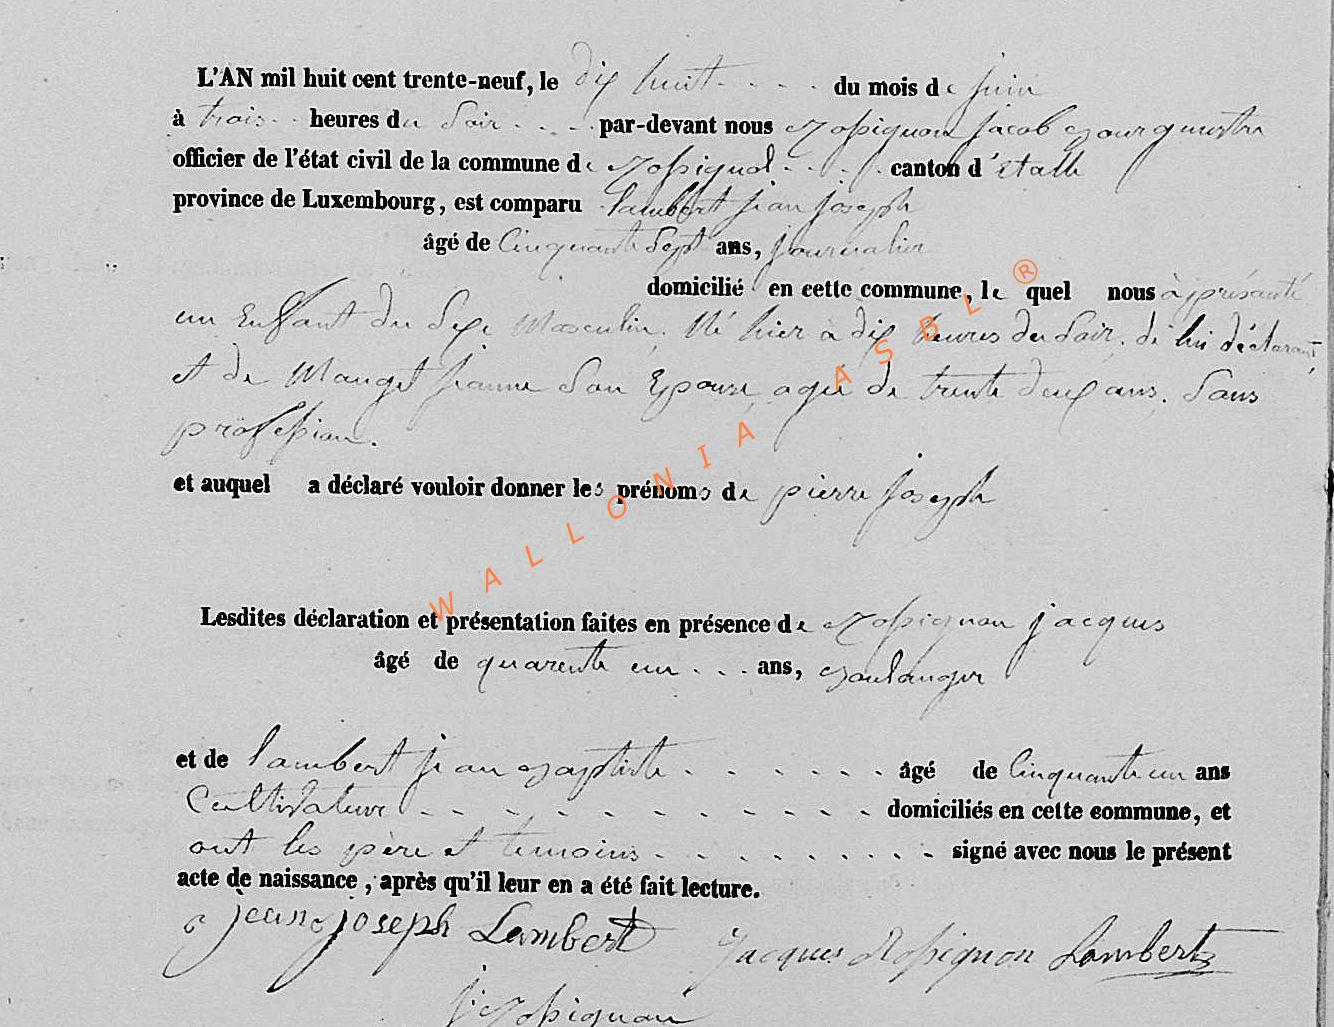 L'AN mil huit cent trente-neuf, le dix huit . . . . du mois de juin
à trois . . heures du Soir . . . . par-devant nous Rossignon jacob Bourgmestre
officier de l'état civil de la commune de Rossignol . . . . canton d'étalle
province de Luxembourg, est comparu lambert jean joseph
âgé de Cinquante Sept ans, journalier
domicilié en cette commune, le quel nous à présanté
un Enffant du Sexe Masculin. Né hier à dix heures du Soir. de lui déclarant
et de Mauget jeanne Son Epouse agée de trente deux ans. Sans
profession.
et auquel a déclaré vouloir donner les prénoms de pierre joseph
WALLONIA ASBL ®
Lesdites déclaration et présentation faites en présence de Rossignon jacques
âgé de quarente un . . . ans, Boulanger
et de lambert jean Baptiste . . . . . . âgé de Cinquante un ans
Cultivateur - - - - - - - - - - domiciliés en cette commune, et
ont les père et temoins . . . . . . . . . signé avec nous le présent
acte de naissance, après qu'il leur en a été fait lecture.
jean joseph Lambert jacques Rossignon Lambert
j: Rossignon